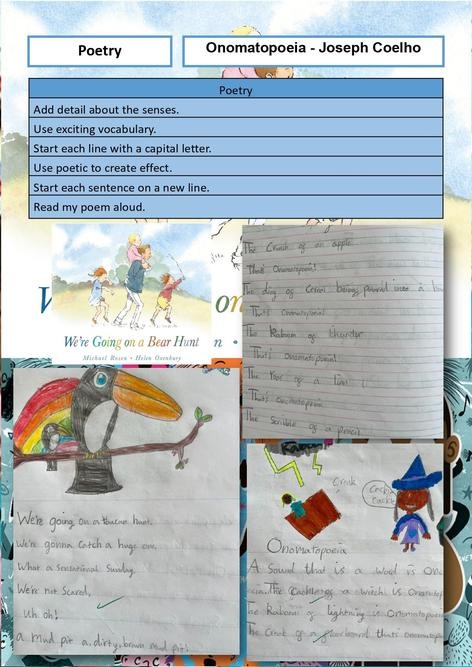 Poetry
Onomatopoeia - Joseph Coelho
Poetry
Add detail about the senses.
Use exciting vocabulary.
Start each line with a capital letter.
Use poetic to create effect.
Start each sentence on a new line.
Read my poem aloud.
We're Going on a Bear Hunt
Michael Rosen • Helen Oxenbury
The Crunch of an apple
That's Onomatopoeia!
The ding of Cereal being poured into a
That's onomatopoeia!
The Kaboom of thunder
That's Onomatopoeia!
The Roar of a lion
That's onomatopoeia
The Scribble of a pencil
We're going on a hunt.
We're gonna Catch a huge one,
What a sensational Sunday.
We're not Scared,
Uh oh!
a mud pit a dirty, brown mud pit!
Creak
Cackle
Cackle
Onomatopoeia
A Sound that is a word is
The Cackle of a witch is
The Kaboom of lightning is Onomatopoeia
The Creak of a floorboard that's Onomatopoeia